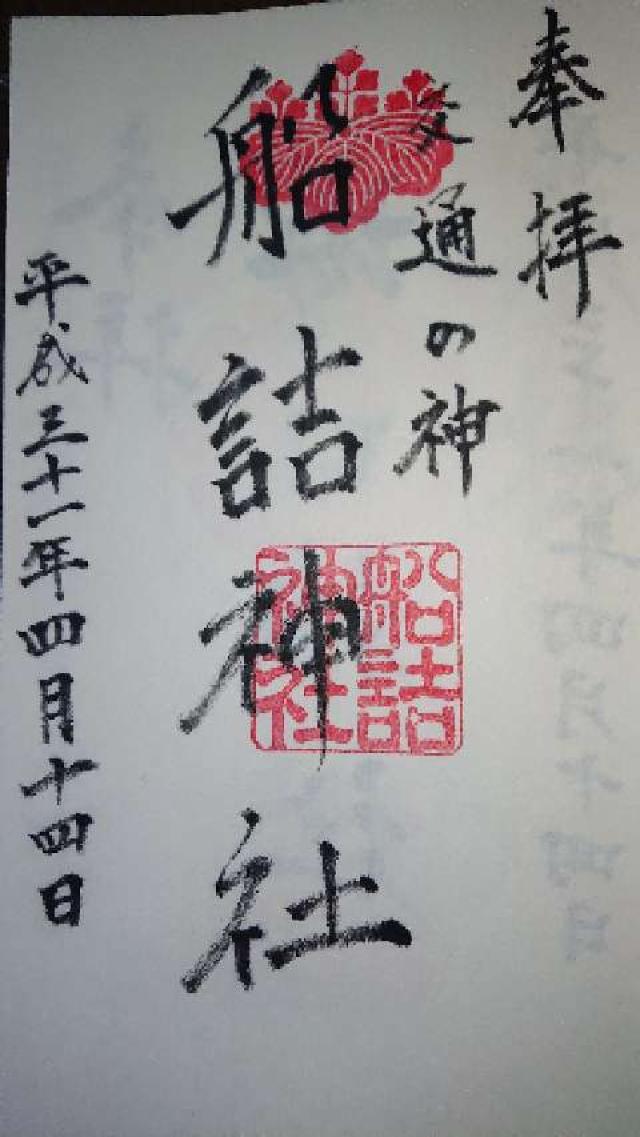 奉拝
交通の神
船詰神社
船詰
神社
平成三十一年四月十四日